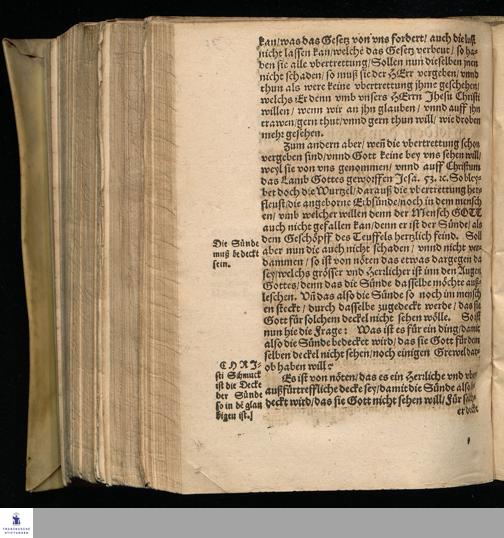 kan/ was das Gesetz von vns fordert/ auch die lust
nicht lassen kan/ welche das Gesetz verbeut/ so ha-
ben sie alle vbertrettung/ Sollen nun dieselben jnen
nicht schaden/ so muß sie der HErr vergeben/ vnnd
thun als were keine vbertrettung jhme geschehen/
welchs Er denn vmb vnsers HErrn Jhesu Christi
willen/ wenn wir an jhn glauben/ vnnd auff jhn
trawen/ gern thut/ vnnd gern thun will/ wie droben
mehr gesehen.
Zum andern aber/ weñ die vbertrettung schon
vergeben sind/ vnnd Gott keine bey vns sehen will/
weyl sie von vns genommen/ vnnd auff Christum
das Lamb Gottes geworffen Jesa. 53. ꝛc. So bley-
bet doch die Wurtzel/ darauß die vbertrettung her
fleust/ die angeborne Erbsünde/ noch in dem mensch
en/ vmb welcher willen denn der Mensch GOTT
auch nicht gefallen kan/ denn er ist der Sünde/ als
dem Geschöpff des Teuffels hertzlich feind. Soll
aber nun die auch nicht schaden/ vnnd nicht ver-
dammen/ so ist von nöten das etwas dargegen da
sey/ welchs grösser vnd Herrlicher ist inn den Augen
Gottes/ denn das die Sünde dasselbe möchte auß-
leschen. Vñ das also die Sünde so noch im mensch
en steckt/ durch dasselbe zugedeckt werde/ das sie
Gott für solchem deckel nicht sehen wölle. So ist
nun hie die Frage: Was ist es für ein ding/ damit
also die Sünde bedecket wird/ das sie Gott für dem
selben deckel nicht sehen/ noch einigen Grewel dar-
ob haben will?
Es ist von nöten/ das es ein Herrliche vnd vber
außfürtreffliche decke sey/ damit die Sünde also
deckt wird/ das sie Gott nicht sehen will/ Für
er deckt
Die Sünde
muß bedeckt
sein.
CHRI-
sti Schmuck
ist die Decke
der Sünde
so in dẽ glau
bigen ist.]
FRANCKESCHE
STIFTUNGEN